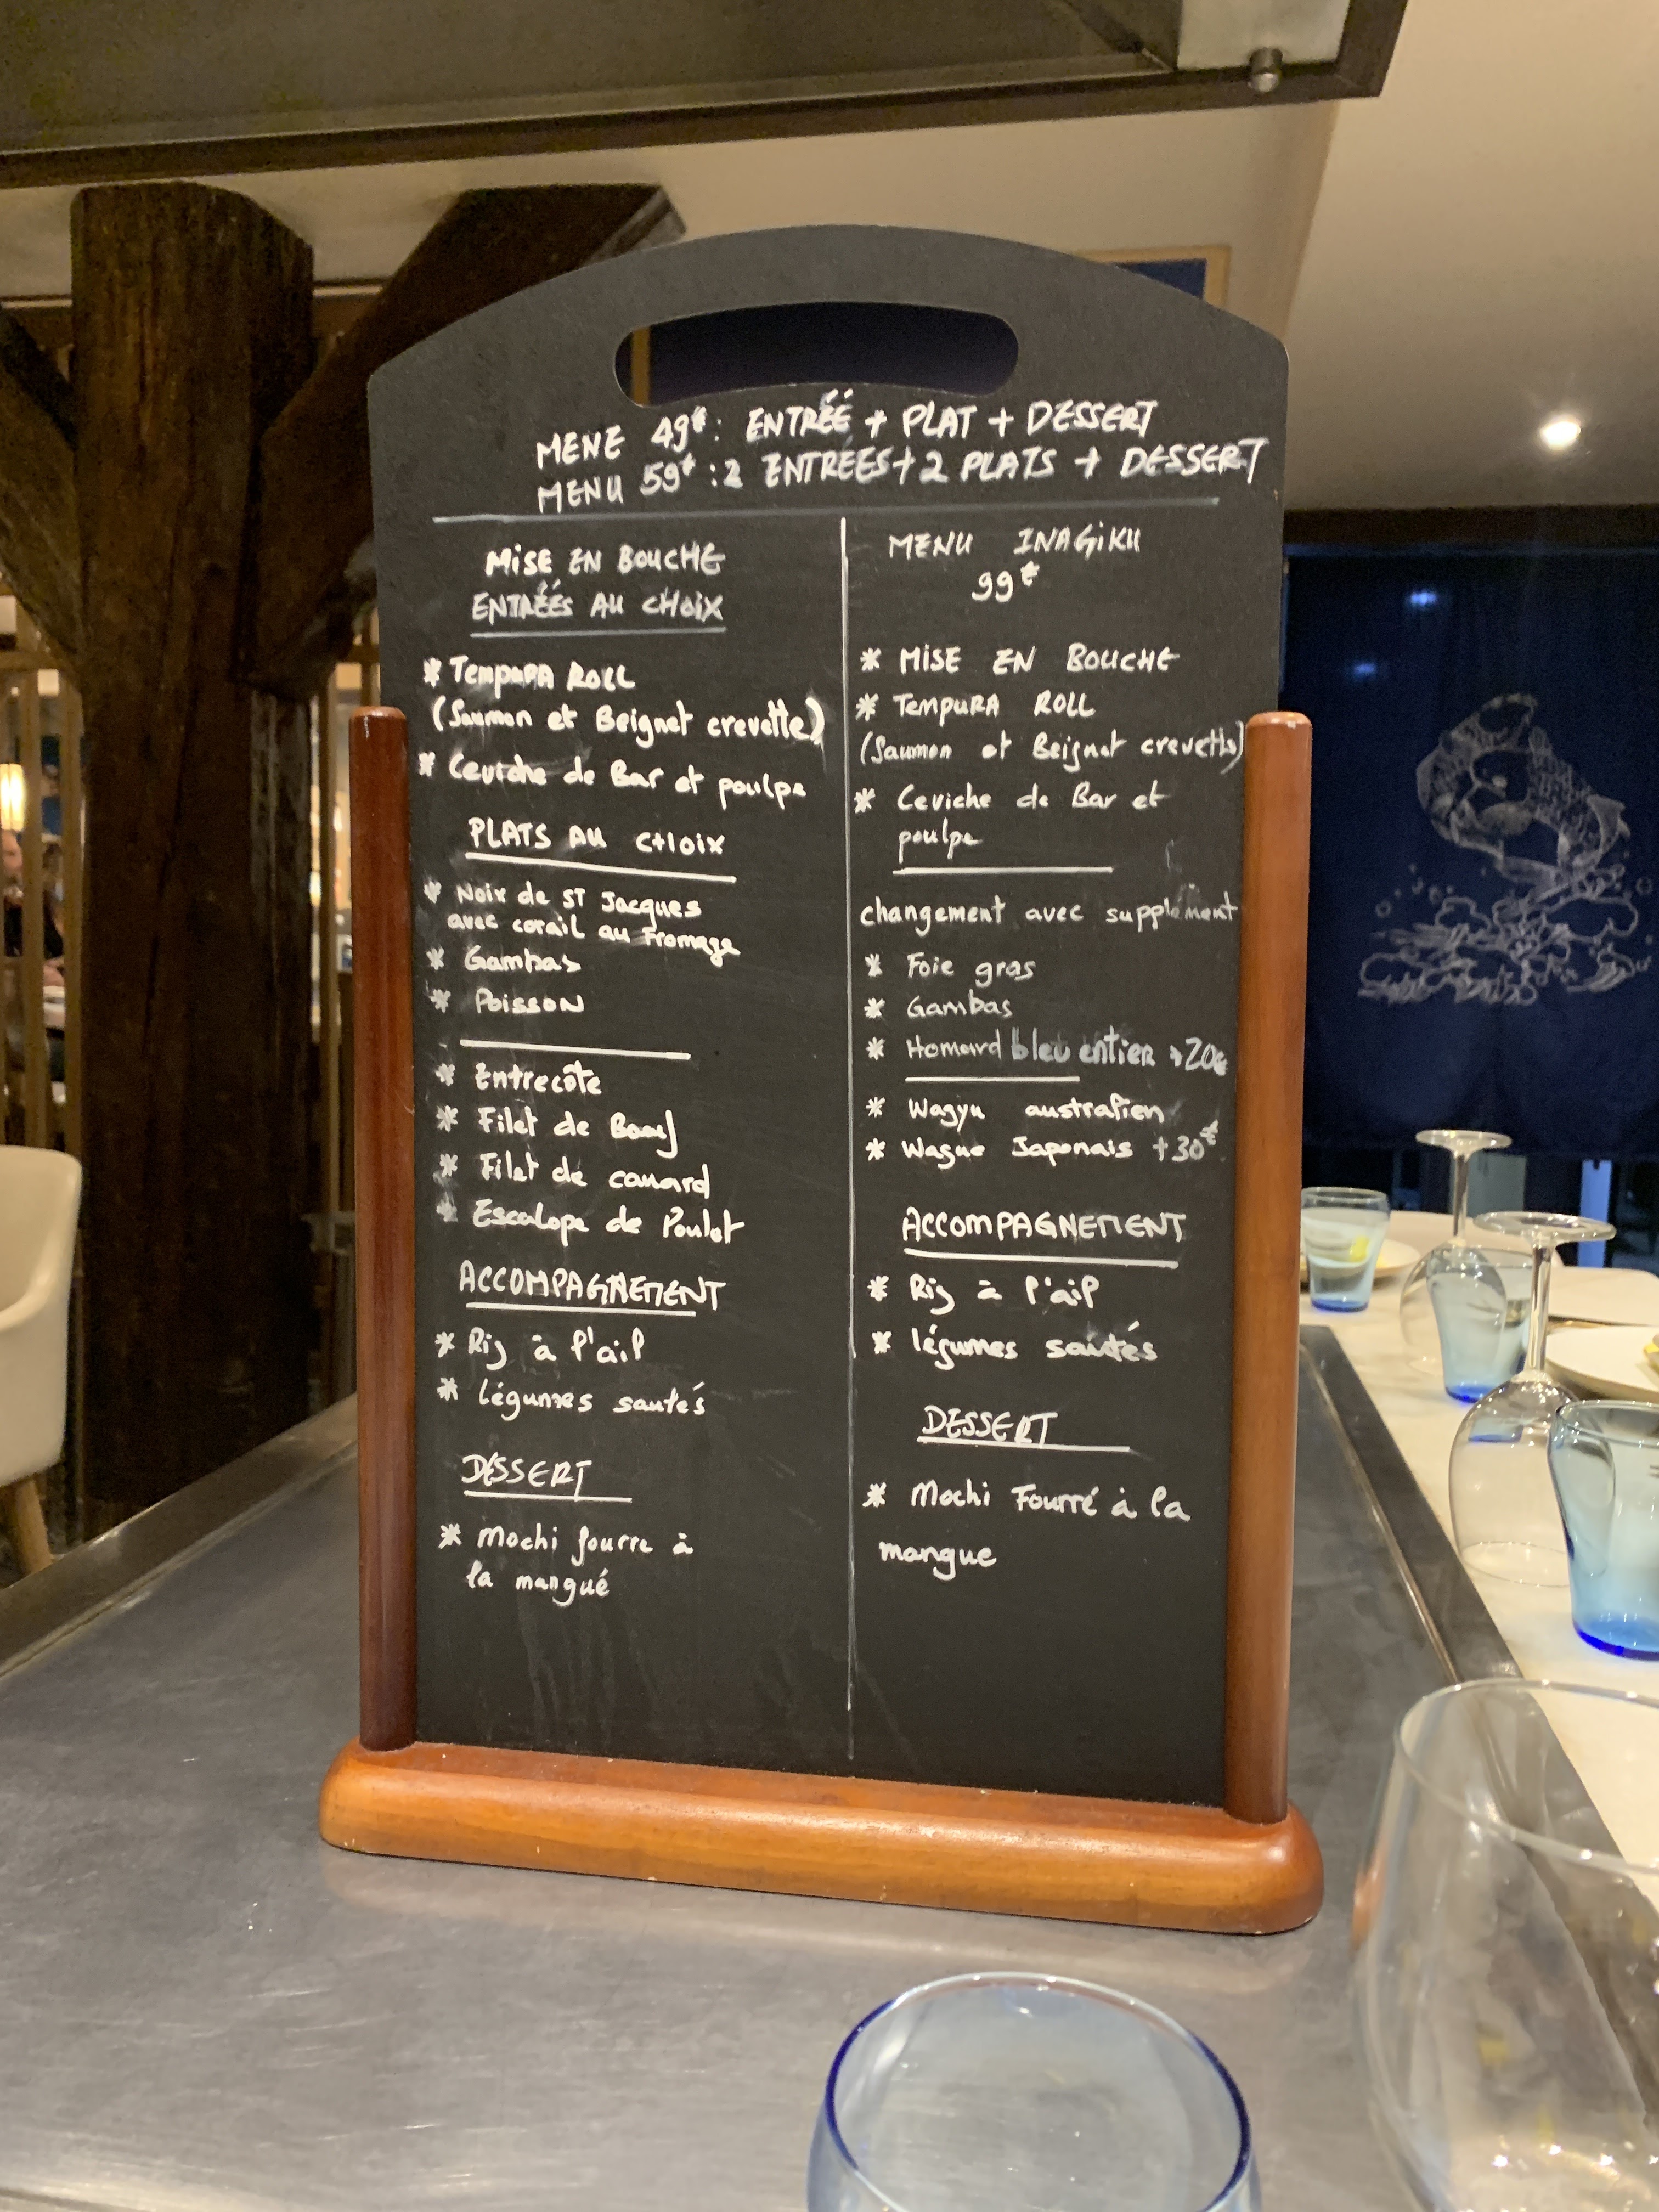 MENE 49€: ENTRÉÉ + PLAT + DESSERT
MENU 59€: 2 ENTRÉES + 2 PLATS + DESSERT
MISE EN BOUCHE
ENTRÉÉS AU CHOIX
* TEMPURA ROLL
(Saumon et Beignet crevette)
* Ceviche de Bar et poulpe
PLATS AU CHOIX
* Noix de ST Jacques
avec corail au Fromage
* Gambas
* Poisson
* Entrecôte
* Filet de Boeuf
* Filet de canard
* Escalope de Poulet
ACCOMPAGNEMENT
* Riz à l'ail
* légumes sautés
DESSERT
* Mochi fourre à
la mangué
MENU INAGIKU
99€
* MISE EN BOUCHE
* TEMPURA ROLL
(Saumon et Beignet crevette)
* Ceviche de Bar et
poulpe
changement avec supplément
* Foie gras
* Gambas
* Homard bleu entier +20€
* Wagyu australien
* Wague Japonais +30€
ACCOMPAGNEMENT
* Riz à l'ail
* légumes sautés
DESSERT
* Mochi Fourré à la
mangue